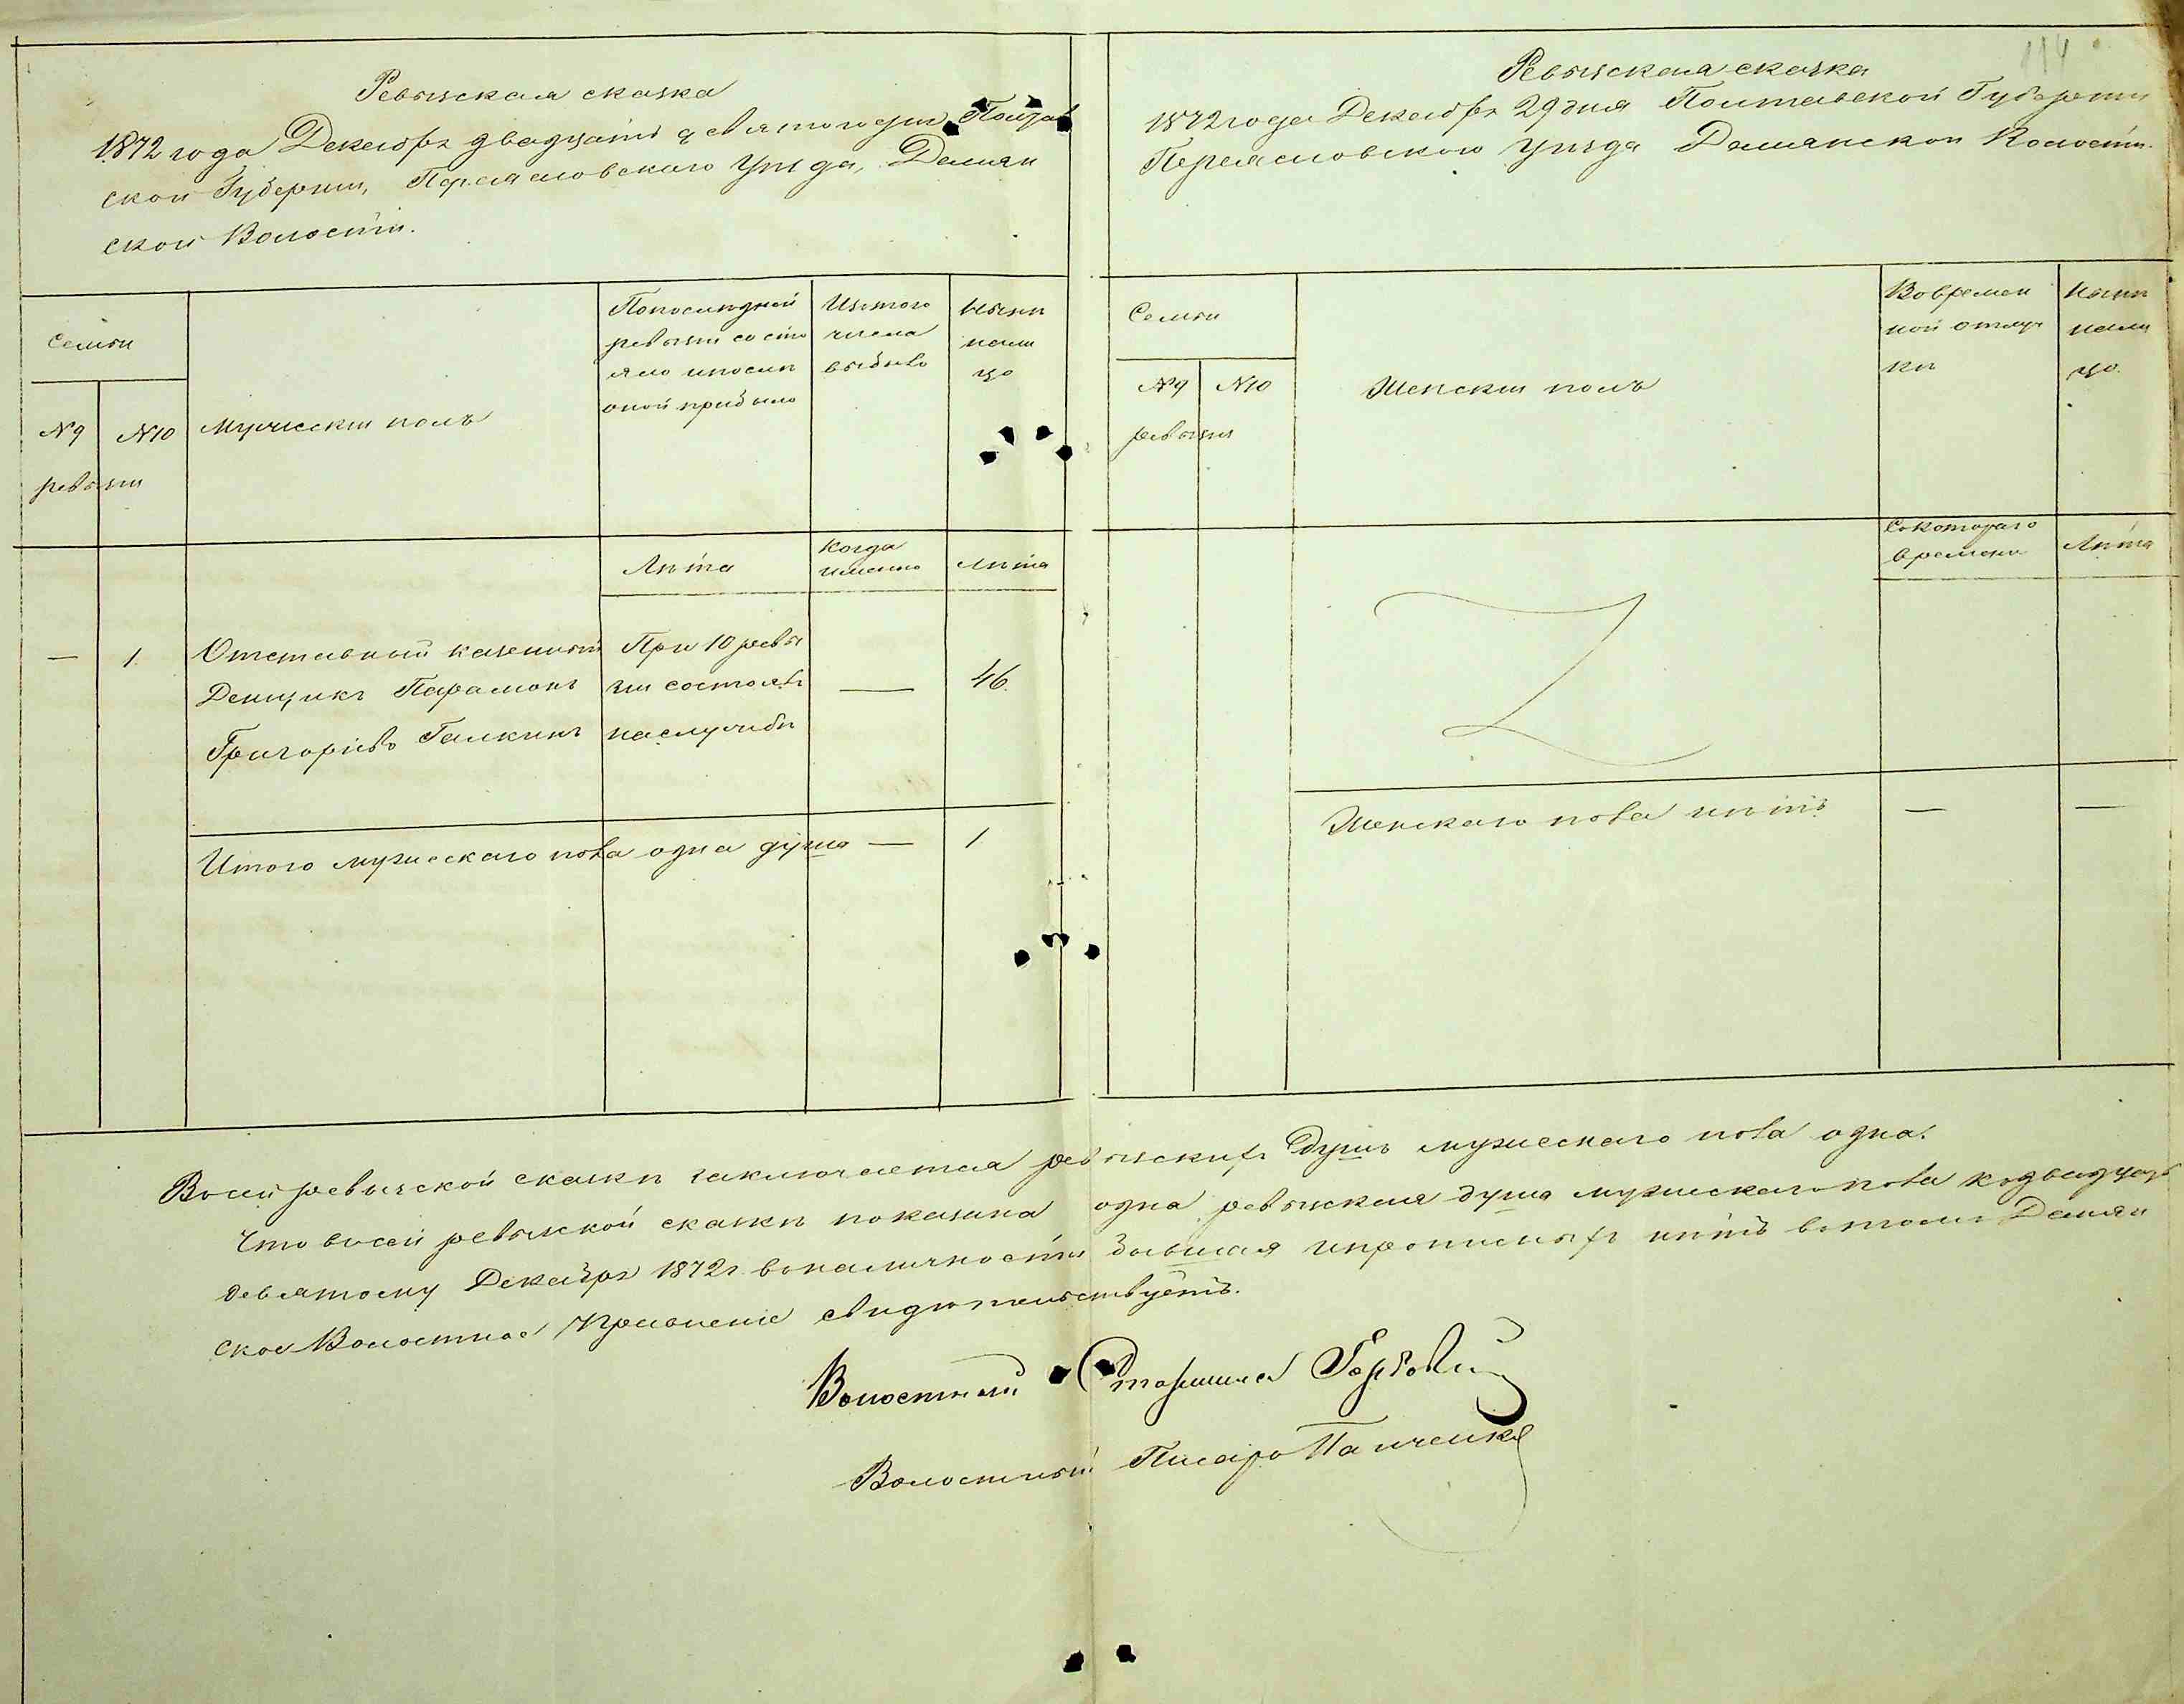 114
Ревизская сказка
1872 года Декабря двадцать девятого дня Полтав
ской Губернии, Переяславского Уѣзда, Демян
ской Волости.
Семьи
№ 9 № 10
ревизіи
Мужескій полъ
Попослѣдней
ревизіи состо
яло ипослѣ
оной прибыло
Изтого
числа
выбыло
Нынѣ
нали
цо
Лѣта
Когда
именно
Лѣта
— 1 Отставной казенный При 10 реви
Денщикъ Парамонъ зіи состоялъ — 46.
Григорьевъ Галкинъ наслужбѣ
Итого мужескаго пола одна душа — 1
Ревизская сказка
1872 года Декабря 29 дня Полтавской Губерніи
Переяславского Уѣзда Демянской Волости.
Семьи
№ 9 № 10
ревизіи
Женскій полъ
Вовремен
ной отлуч
кѣ
Нынѣ
нали
цо.
Скотораго
времени
Лѣта
Женскаго пола нѣтъ — —
Всей ревизской сказкѣ заключается ревизскихъ душъ мужескаго пола одна.
Что всей ревизской сказкѣ показана одна ревизская душа мужескаго пола кодвадцать
девятому Декабря 1872 г. вналичности бывшая ипрописныхъ нѣтъ втомъ Демян
ское Волостное Правленіе свидѣтельствуетъ.
Волостный Старшина
Волостный Писарь Панченко